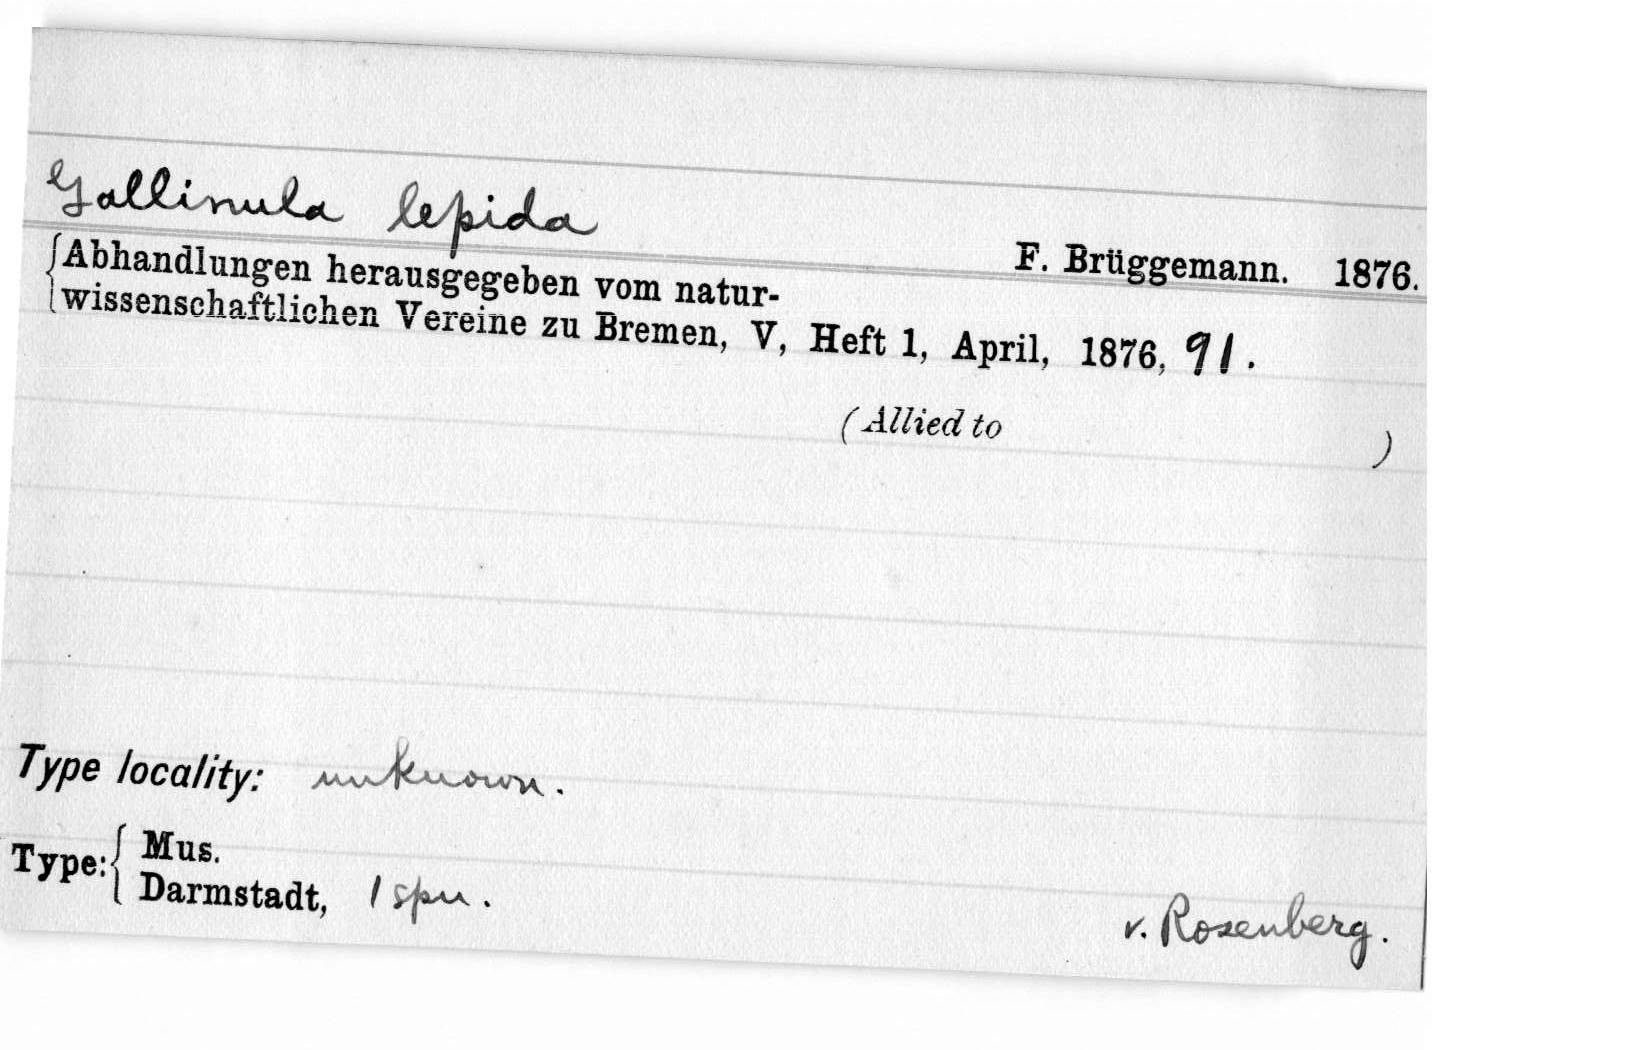 Gallinula lepida
F. Brüggemann. 1876.
{Abhandlungen herausgegeben vom natur-
wissenschaftlichen Vereine zu Bremen, V, Heft 1, April, 1876, 91.
(Allied to )
Type locality: unknown.
Type: { Mus.
Darmstadt, 1 spn.
v. Rosenberg.